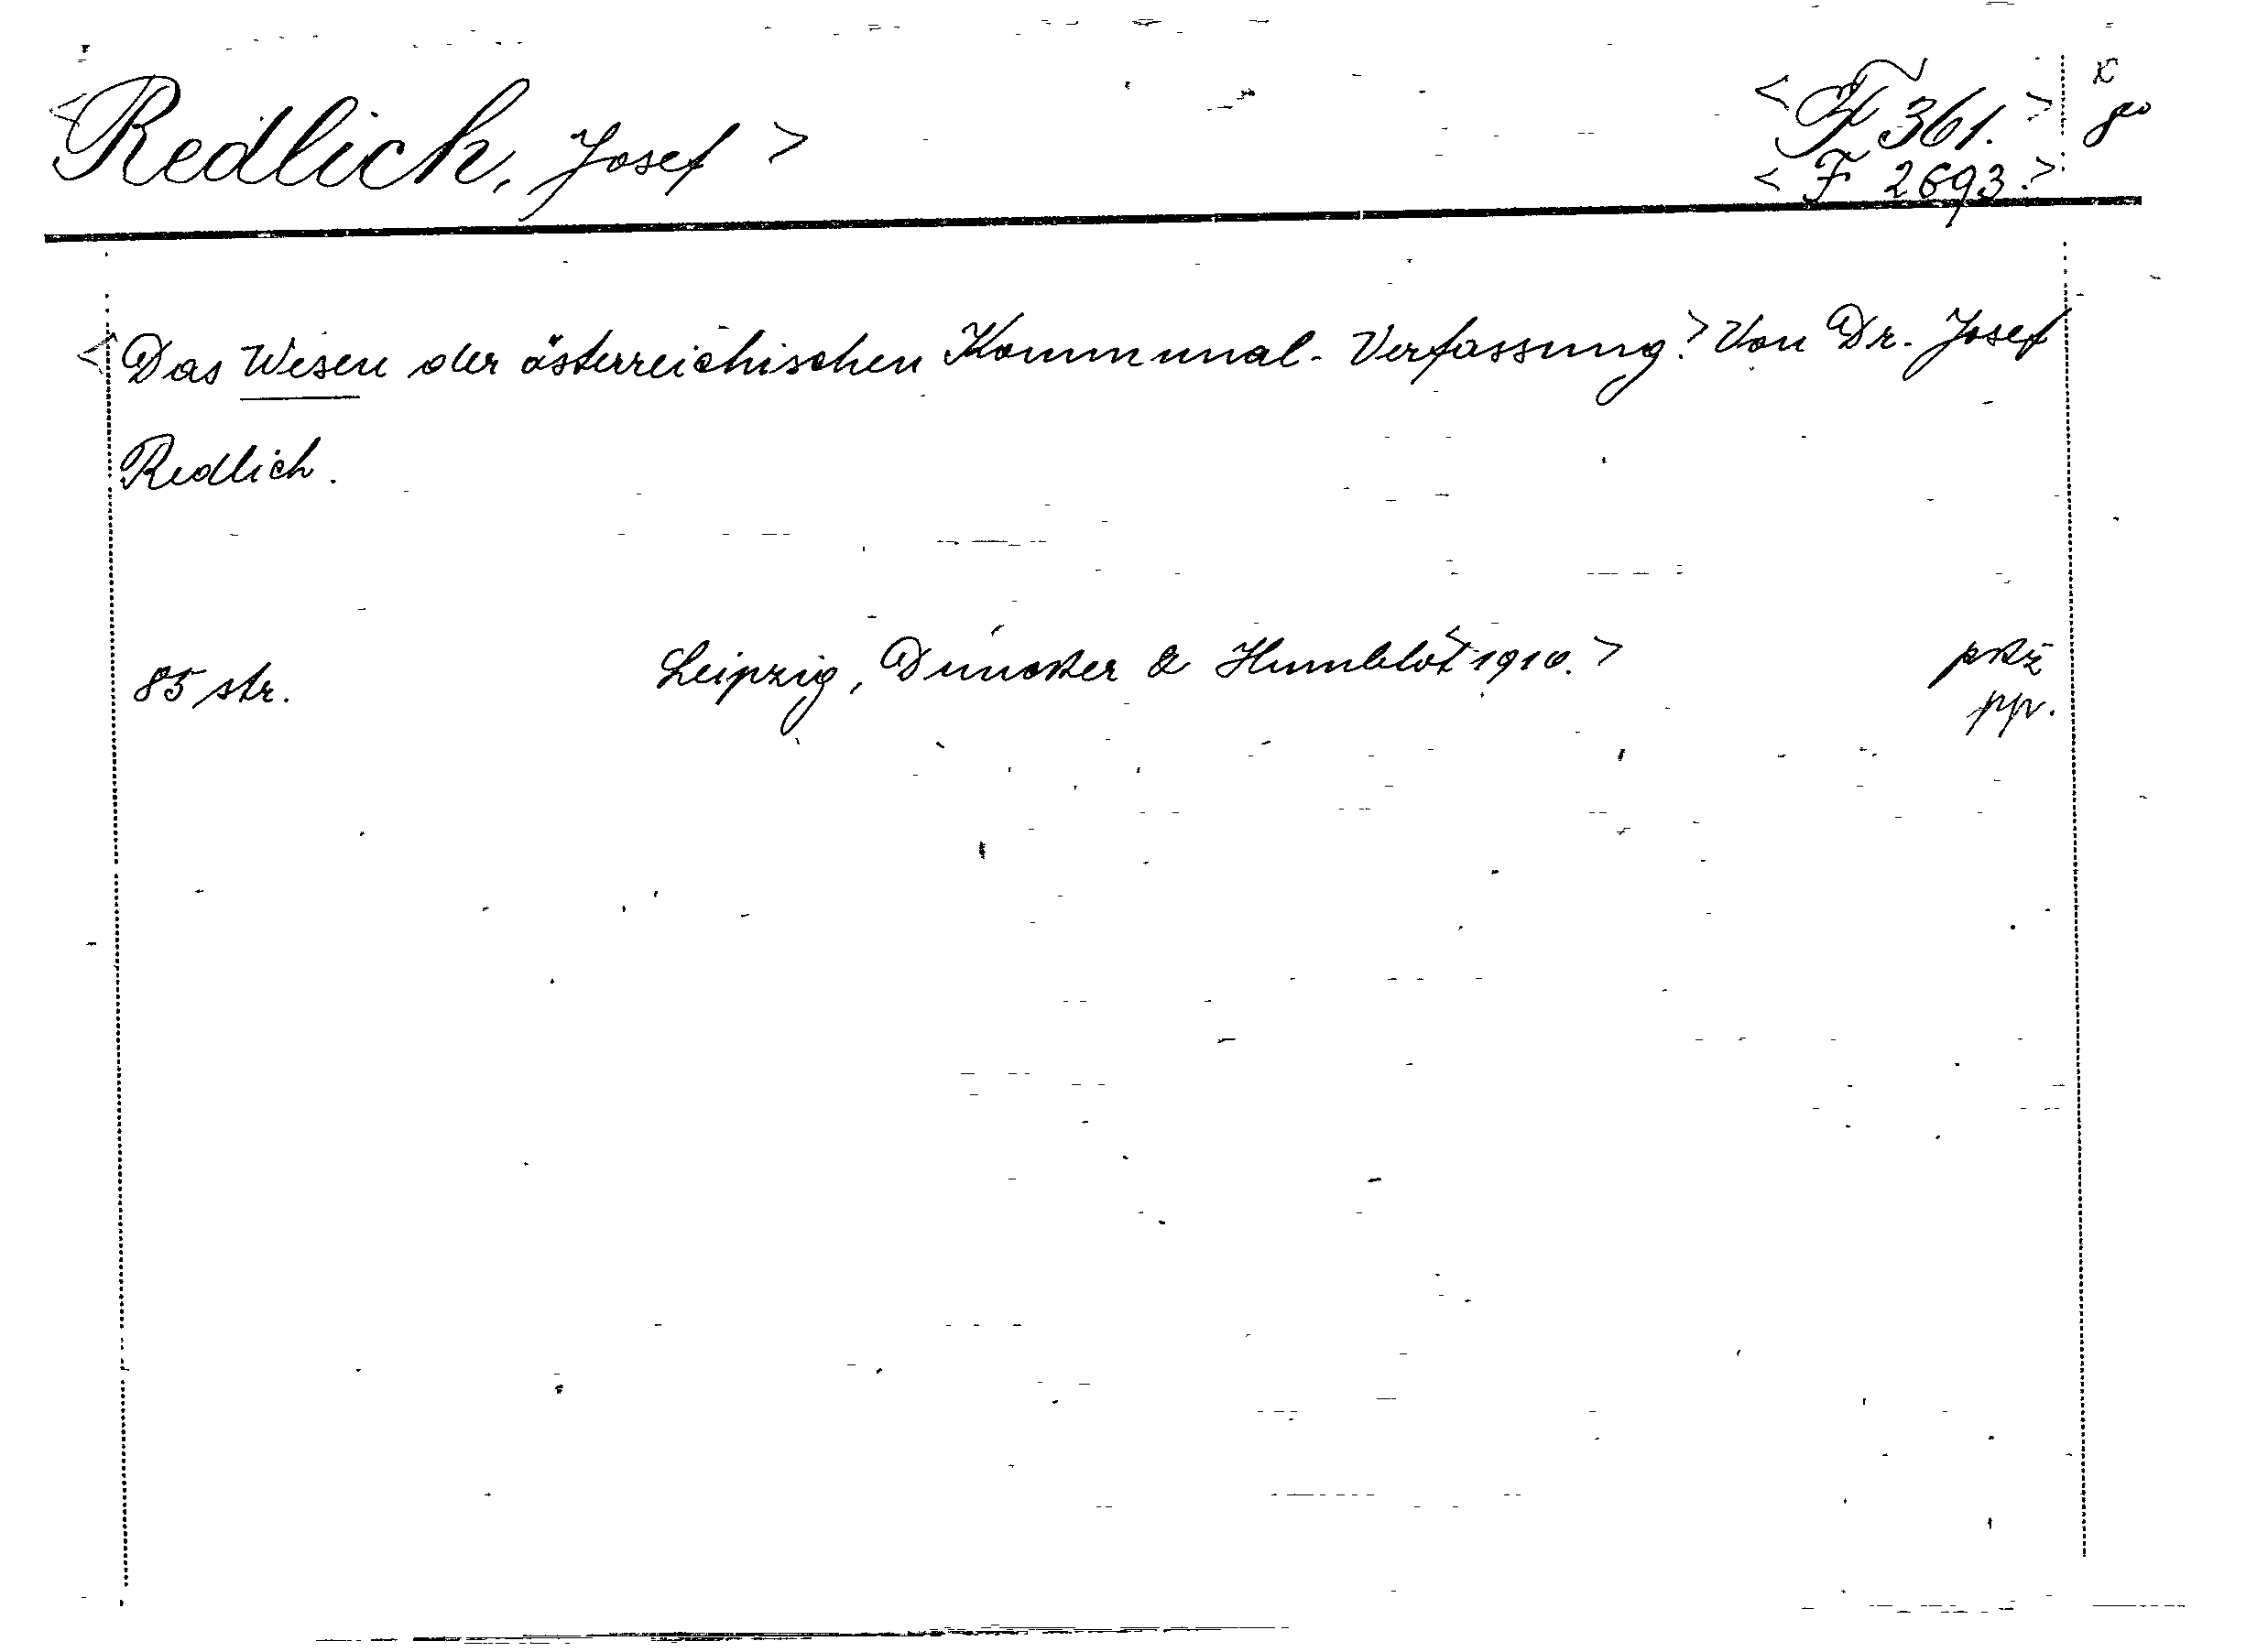 <Redlich, Josef>
<F 361.>
<F 2693.>
<Das Wesen der österreichischen Kommunal-Verfassung.> Von Dr. Josef
Redlich.
85 str. Leipzig, Duncker & Humblot <1910.>